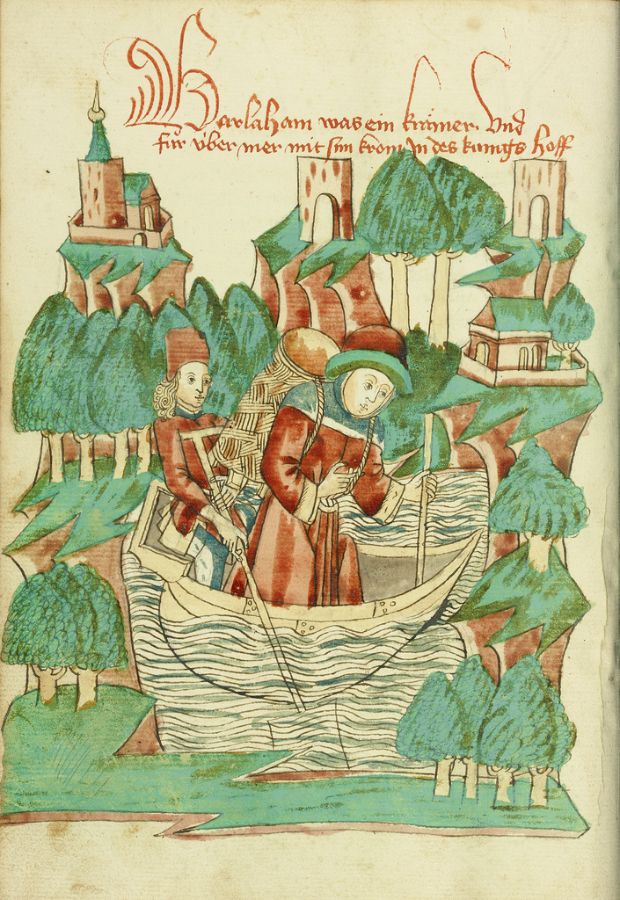 Barlaham was ein krämer. Vnd
für v̈ber mer mit sim krom Jn des kunigs hoff